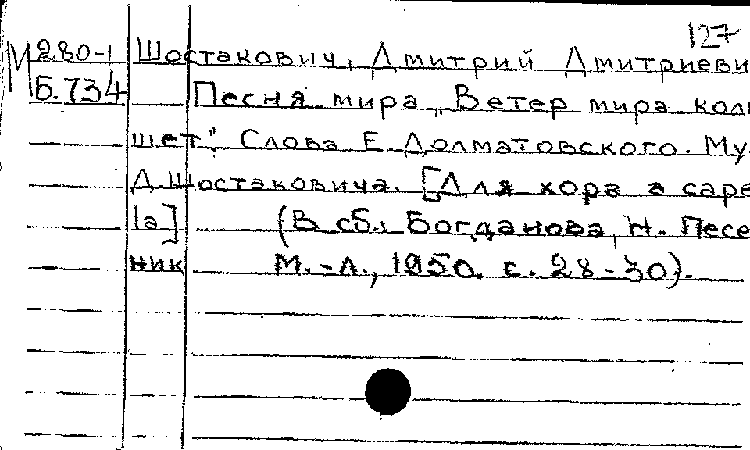 127
М 280-1 Шостакович, Дмитрий Дмитриеви
Б.734 Песня мира „Ветер мира колы
шет". Слова Е. Долматовского. Му
Д.Шостаковича. [Для хора a capе
la] (В сб.: Богданова, Н. Песе
ник М.-Л., 1950. с. 28-30).